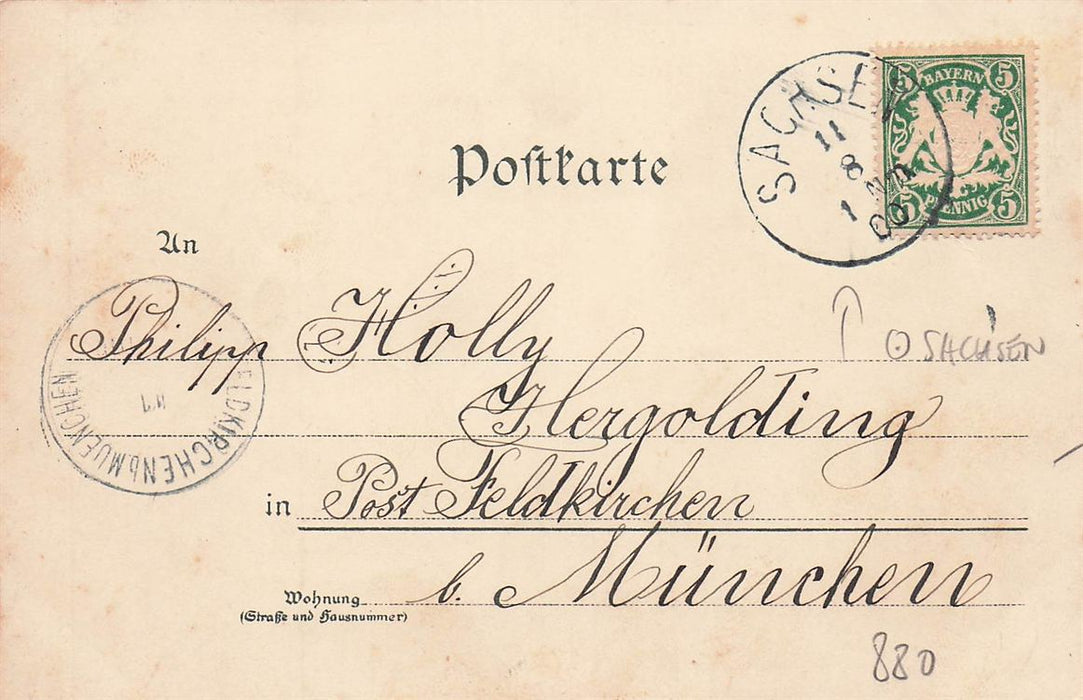 Postkarte
SACHSEN
11
8
1 Nm
00
5 BAYERN 5
5 PFENNIG 5
An
Philipp Holly
SACHSEN
FELDKIRCHEN b. MUENCHEN
Hergolding
in Post Feldkirchen
b. München
Wohnung
(Straße und Hausnummer)
880